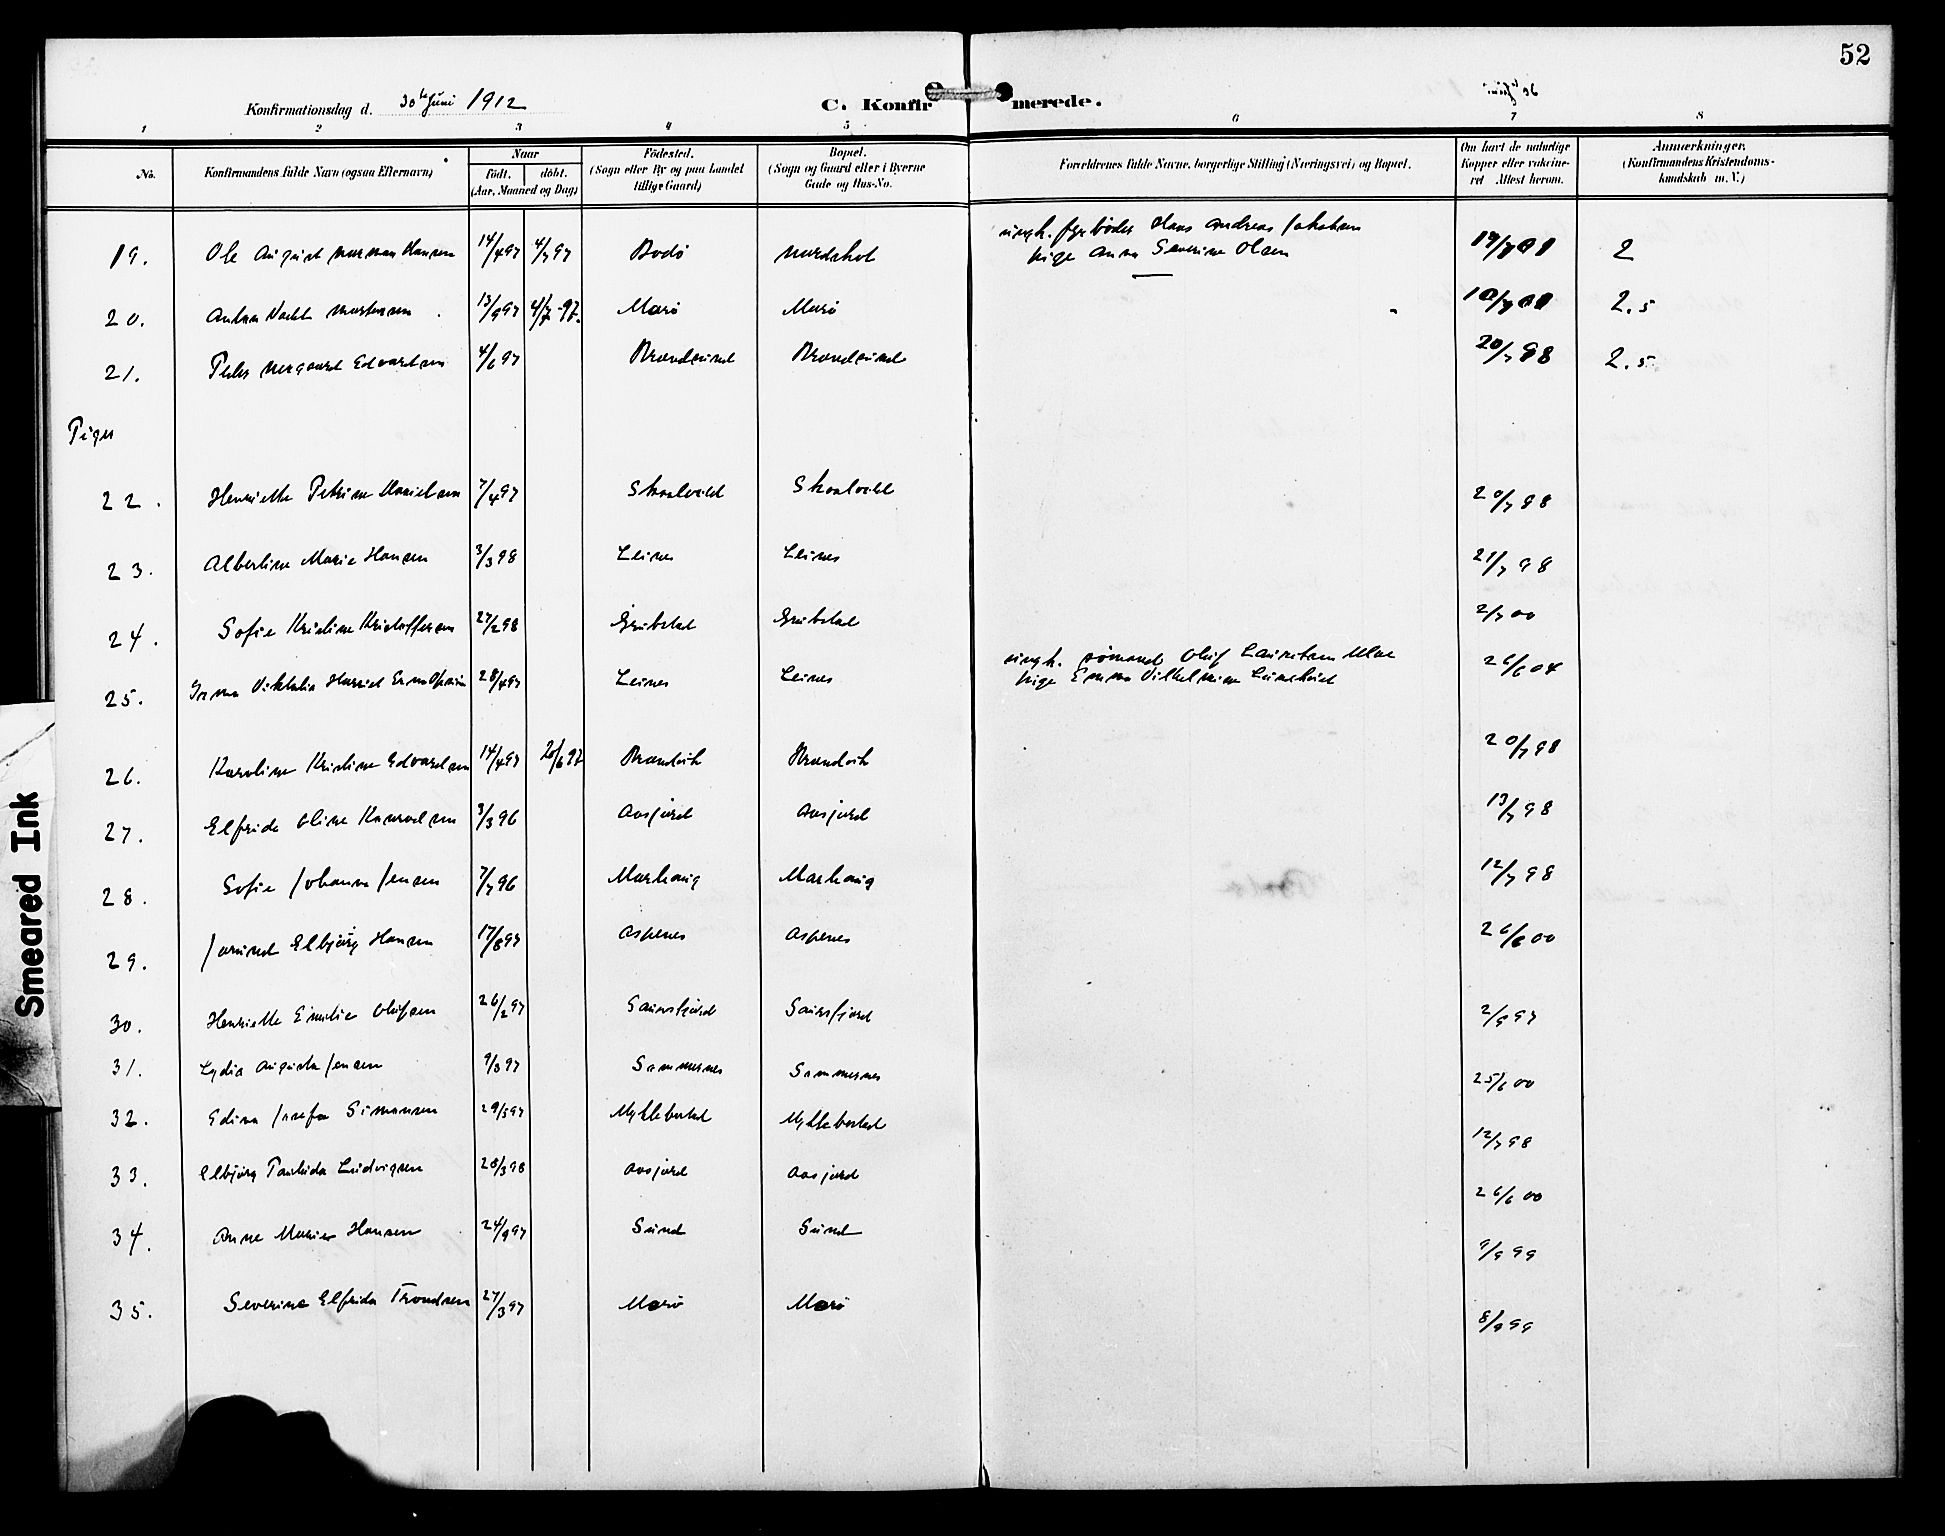 52
Konfirmationsdag d. 30te Juni 1912
C. Konfirmerede.
30te Juni
1 2 3 4 5 6 7 8
No.
Konfirmandens fulde Navn (ogsaa Efternavn)
Naar
födt. döbt.
(Aar, Maaned og Dag)
Födested.
(Sogn eller By og paa Landet
tillige Gaard)
Bopæl.
(Sogn og Gaard eller i Byerne
Gade og Hus-No.
Forældrenes fulde Navne, borgerlige Stilling (Næringsvei) og Bopæl.
Om havt de naturlige
Kopper eller vaccine-
ret Attest herom.
Anmærkninger.
(Konfirmandens Kristendoms-
kundskab m. V.)
ungk. fyrböder Hans Andreas Jakobsen
19. Ole August Norman Hansen 14/4 97 4/7 97 Bodö Nordskot pige Anna Severine Olsen 2
20. Anton Martinsen 13/9 97 4/7 97. Marö Marö 2.5
21. Peder Edvardsen 4/6 97 Brandsund Brandsund 20/7 98 2.5
Piger
22. Henriette Petrine Danielsen 7/4 97 Skaalvold Skaalvold 20/7 98
23. Albertine Marie Hansen 3/3 98 Leines Leines 21/7 98
24. Sofie Kristine Kristoffersen 27/2 98 Grubstad Grubstad 2/7 00
ungk. sömand Oluf Lauritsen
25. Harriet 28/4 97 Leines Leines pige Emma Vilhelmine 26/6 04
26. Karoline Kristine Edvardsen 14/4 97 20/6 97 Brandvik Brandvik 20/7 98
27. Elfrida Oline Konradsen 3/3 96 Aasjord Aasjord 13/7 98
28. Sofie Johanna Jensen 7/7 96 Marhaug Marhaug 12/7 98
29. Jorund Elbjörg Hansen 17/8 97 Aspenes Aspenes 26/6 00
30. Henriette Emilie Olufsen 26/2 97 Saursfjord Saursfjord 2/9 97
31. Lydia Augusta Jensen 9/3 97 Sommernes Sommernes 25/6 00
32. Edina Josefa Simonsen 29/3 97 Myklebostad Myklebostad 12/7 98
33. Elbjörg Paulida Ludvigsen 28/3 98 Aasjord Aasjord 26/6 00
34. Anne Marie Hansen 24/9 97 Sund Sund 9/9 99
35. Severine Elfrida Trondsen 27/3 97 Marö Marö 8/9 99
Smeared Ink